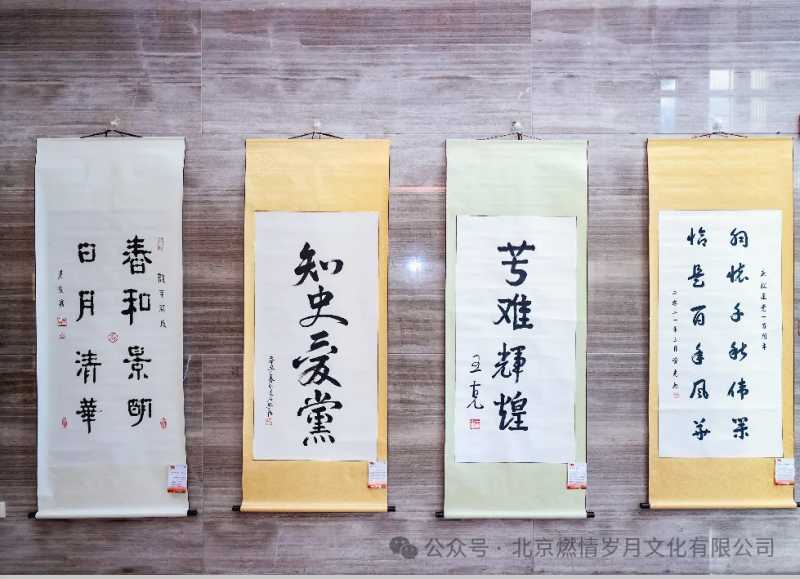 春和景明
日月清華
知史愛黨
苦难輝煌
王克
胸怀千秋伟業
恰是百年风华
公众号·北京燃情岁月文化有限公司